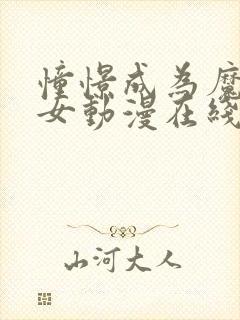 憧憬成為魔
女動漫在綫
山河大人